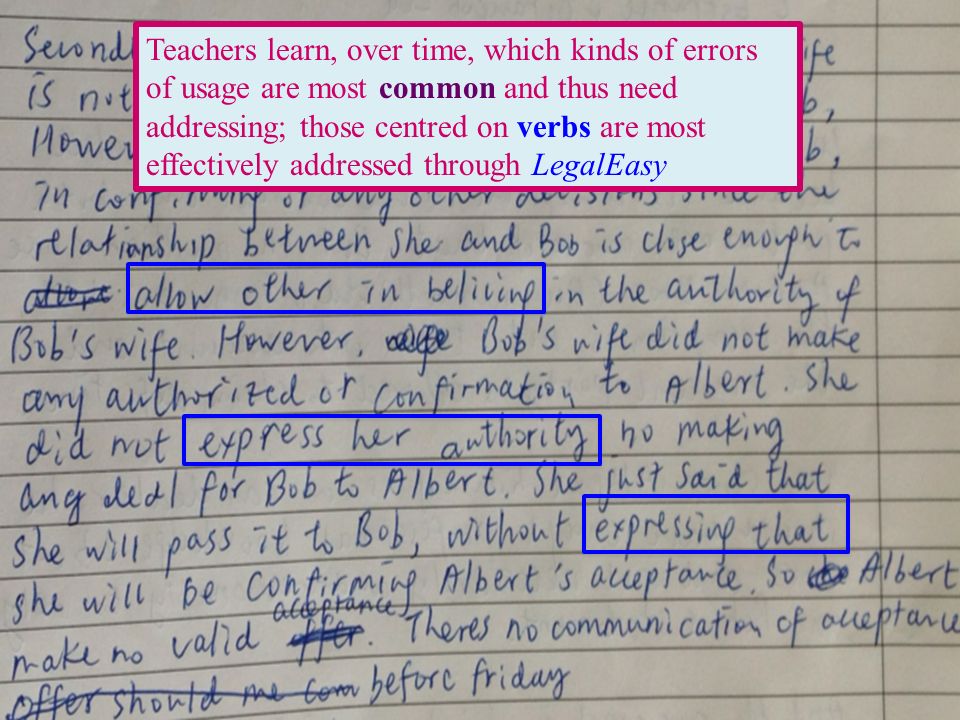 Teachers learn, over time, which kinds of errors
of usage are most common and thus need
addressing; those centred on verbs are most
effectively addressed through LegalEasy
is not
in confirming or any other decisions since the
relationship between she and Bob is close enough to
allow other in beliving in the authority of
Bob's wife. However, Bob's wife did not make
any authorized or confirmation to Albert. She
did not express her authority no making
any deal for Bob to Albert. She just said that
she will pass it to Bob, without expressing that
she will be confirming Albert's acceptance. So Albert
acceptance
make no valid offer. Theres no communication of acceptance
offer should me com before friday